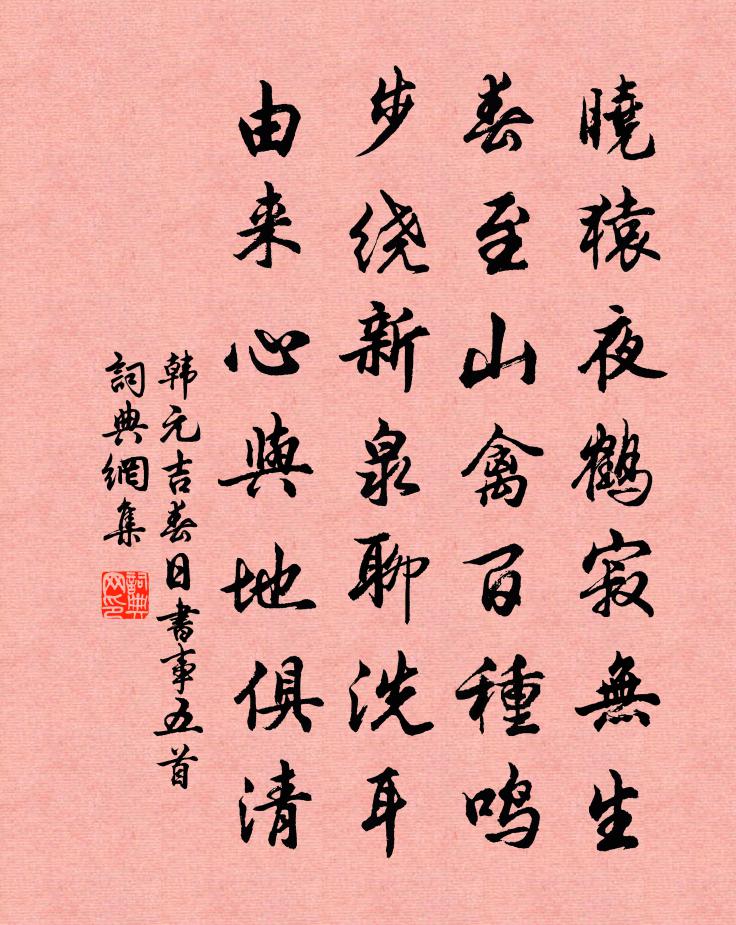 曉猿夜鶴寂無生
春至山禽百種鳴
步绕新泉聊洗耳
由来心與地俱清
韩元吉春日書事五首
詞典網集
詞典网印